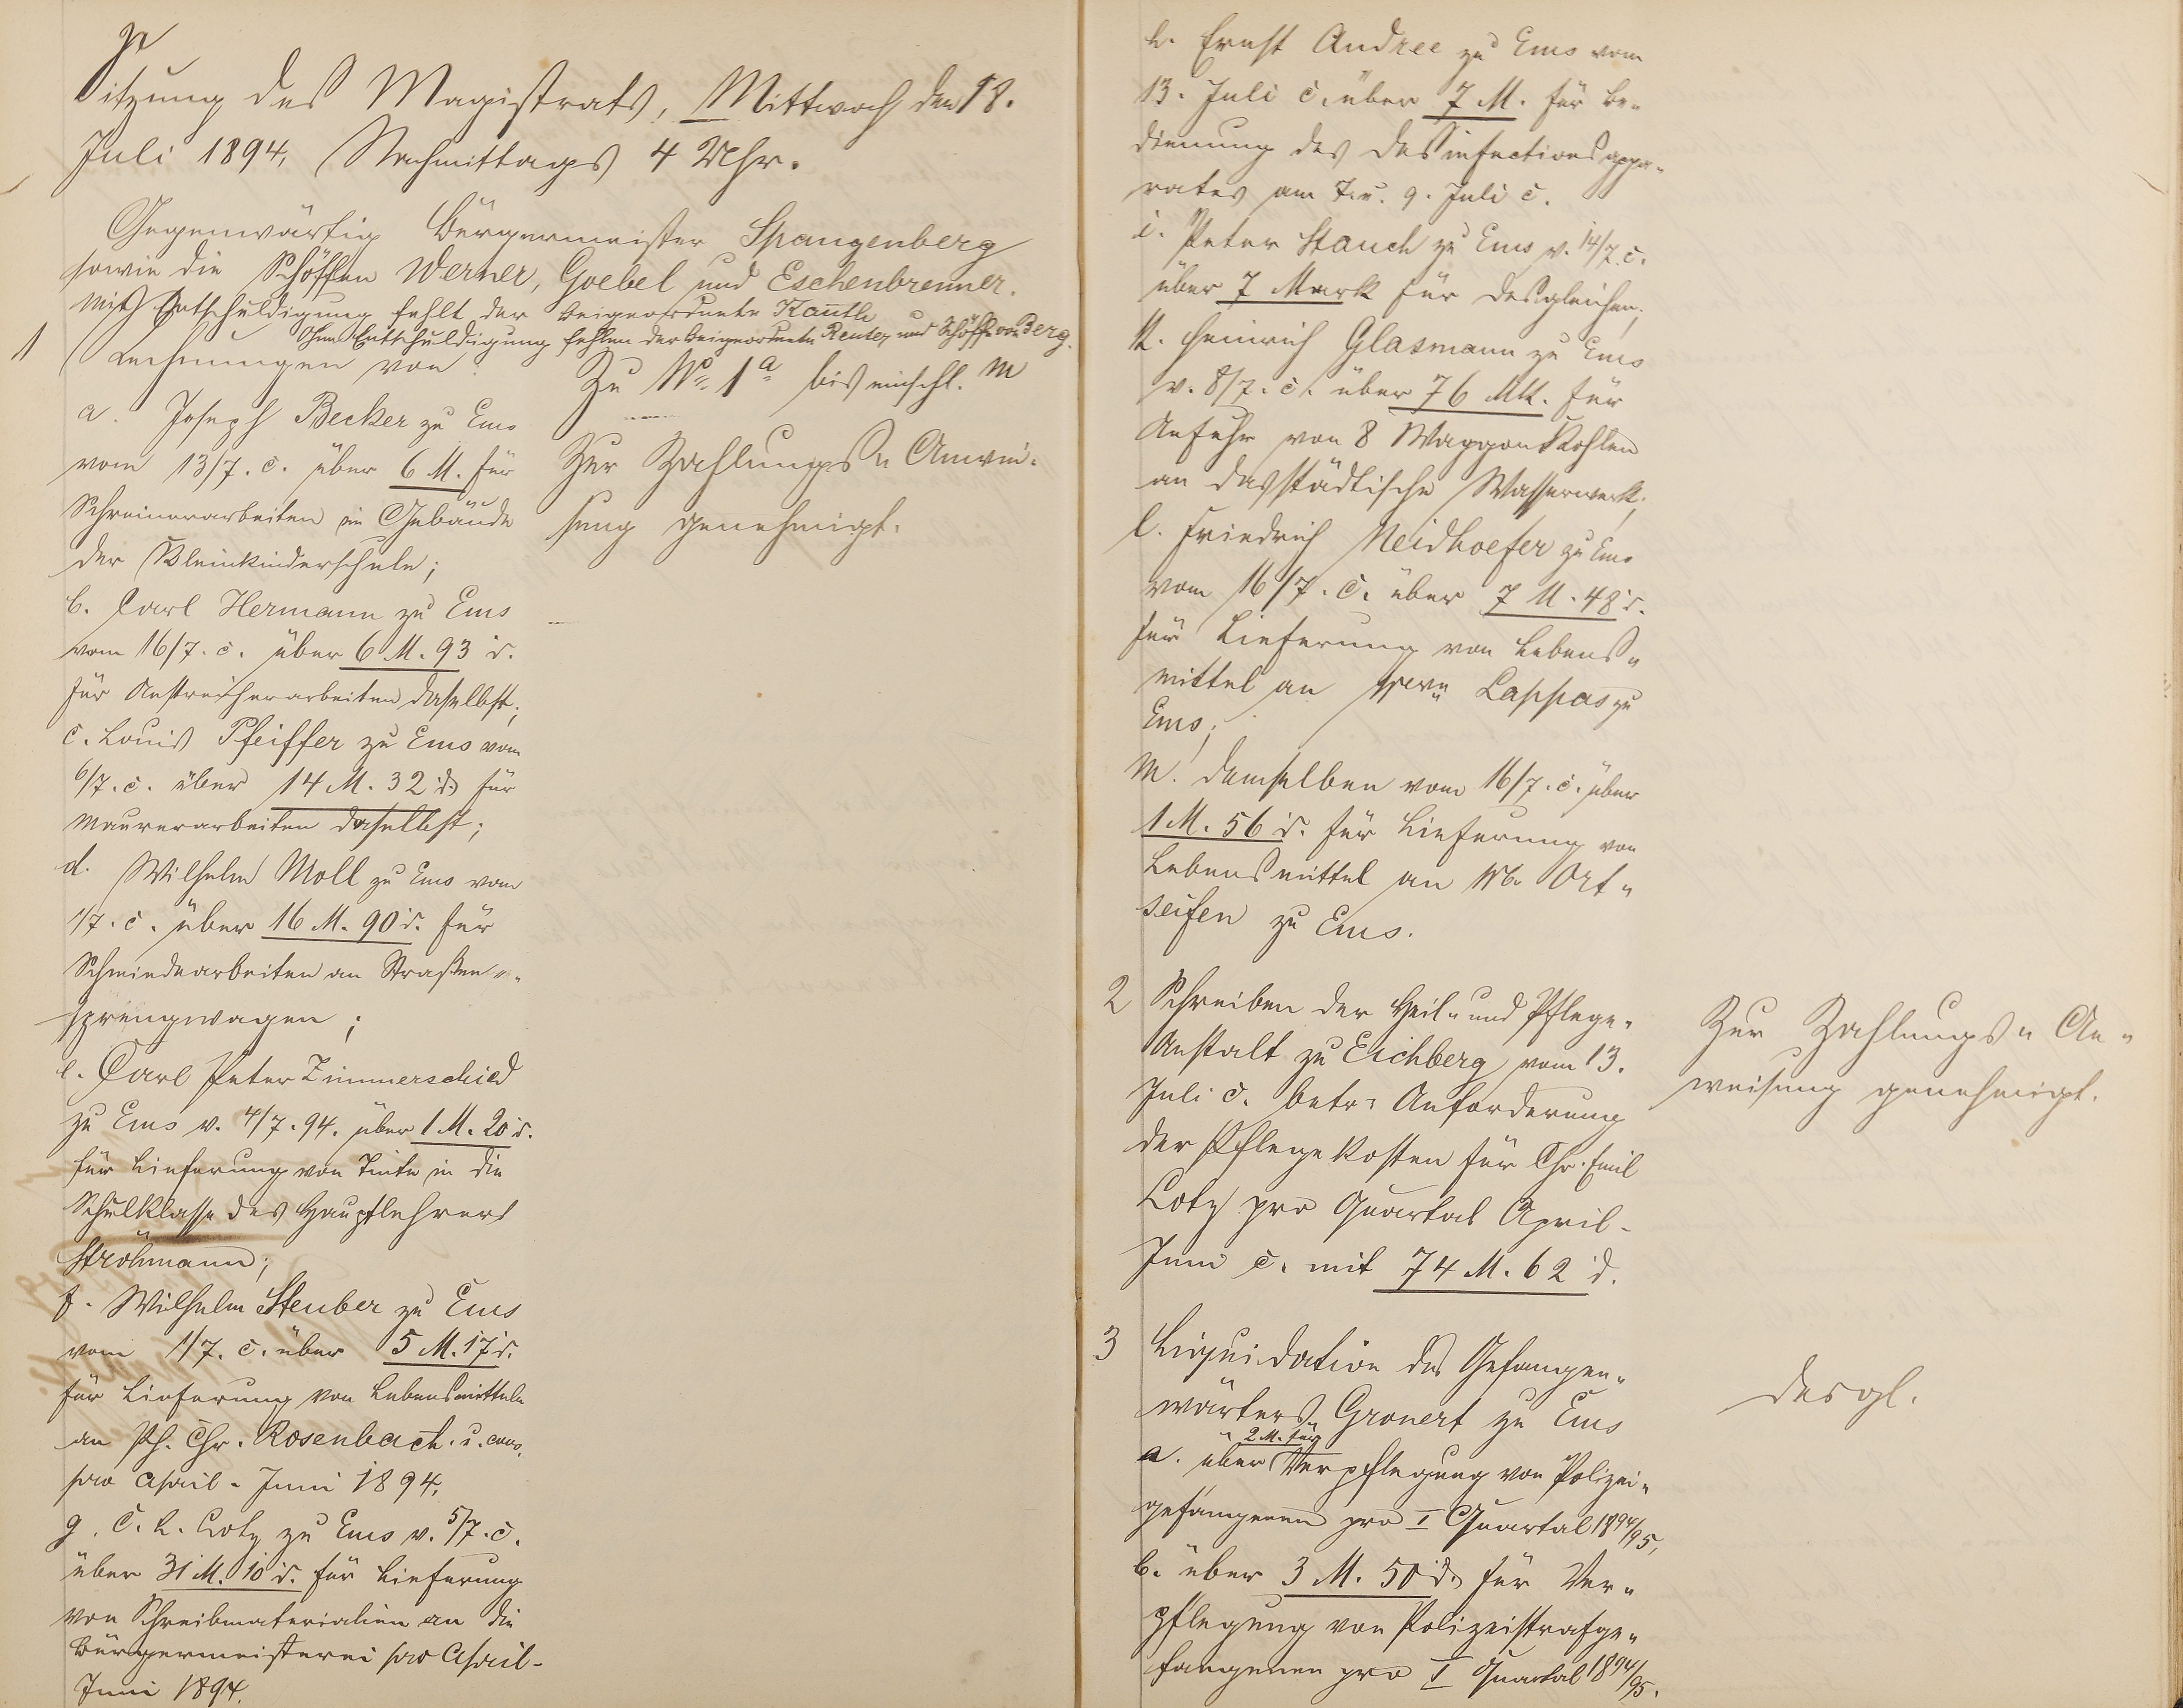 Sitzung des Magistrats, Mittwoch den 18.
Juli 1894, Nachmittags 4 Uhr.
Gegenwärtig Bürgermeister Spangenberg
sowie die Schöffen Werner, Goebel und Eschenbrenner.
Mit Entschuldigung fehlt der Beigeordnete Kauth
Ohne Entschuldigung fehlen der Beigeordnete Reuter und Schöffe von Berg.
1 Rechnungen von:
a. Joseph Becker zu Ems
vom 13/7. c. über 6 M. für
Schreinerarbeiten im Gebäude
der Kleinkinderschule;
b. Carl Hermann zu Ems
vom 16/7. c. über 6 M. 93 d.
für Anstreicherarbeiten daselbst;
c. Louis Pfeiffer zu Ems vom
6/7. c. über 14 M. 32 d. für
Maurerarbeiten daselbst;
d. Wilhelm Moll zu Ems vom
1/7. c. über 16 M. 90 d. für
Schmiedearbeiten an Straßen-
sprengwagen;
e. Carl Peter Zimmerschied
zu Ems v. 4/7. 94. über 1 M. 20 d.
für Lieferung von Tinte in die
Schulklasse des Hauptlehrers
Ströhmann;
f. Wilhelm Steuber zu Ems
vom 1/7. c. über 5 M. 17 d.
für Lieferung von Lebensmitteln
an Ph. Chr. Rosenbach u. cons.
pro April-Juni 1894.
g. C. L. Lotz zu Ems v. 5/7. c.
über 31 M. 10 d. für Lieferung
von Schreibmaterialien an die
Bürgermeisterei pro April-
Juni 1894.
Zu No. 1a bis einschl. m
Zur Zahlungs-Anwei-
sung genehmigt.
h. Ernst Andree zu Ems vom
13. Juli c. über 7 M. für Be-
dienung des Desinfectionsappa-
rates am 7. u. 9. Juli c.
i. Peter Stauch zu Ems v. 14/7. c.
über 7 Mark für desgleichen;
k. Heinrich Glasmann zu Ems
v. 8/7. c. über 76 Mk. für
Anfuhr von 8 Waggon Kohlen
an das städtische Wasserwerk;
l. Friedrich Neidhoefer zu Ems
vom 16/7. c. über 7 M. 48 d.
für Lieferung von Lebens-
mittel an Wwe Lappas zu
Ems;
m. demselben vom 16/7. c. über
1 M. 56 d. für Lieferung von
Lebensmittel an W. Ort-
seifen zu Ems.
2 Schreiben der Heil- und Pflege-
Anstalt zu Eichberg vom 13.
Juli c. betr. Anforderung
der Pflegekosten für Chr. Emil
Lotz pro Quartal April-
Juni c. mit 74 M. 62 d.
Zur Zahlungs-An-
weisung genehmigt.
3 Liquidation des Gefangen-
wärters Gronert zu Ems
a. über 2 M. für Verpflegung von Polizei-
gefangenen pro I Quartal 1894/95,
b. über 3 M. 50 d. für Ver-
pflegung von Polizeistrafge-
fangenen pro I Quartal 1894/95.
desgl.